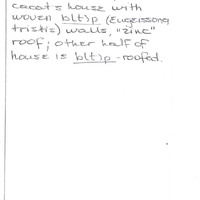 cacat's house with
woven b(t)p (Eugeissona
tristis) walls, "zinc"
roof; other half of
house is b(t)p-roofed.